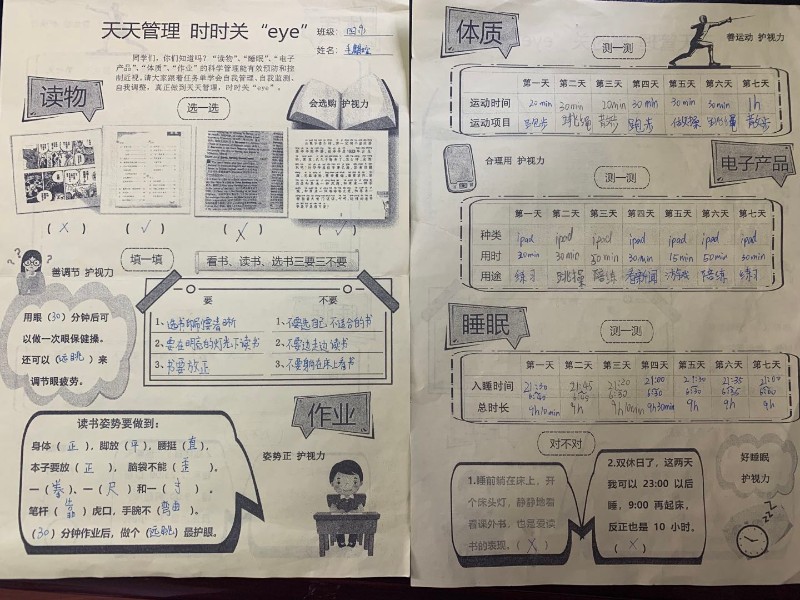 天天管理 时时关“eye”
班级：
姓名：
同学们，你们知道吗？“读物”、“睡眠”、“电子
产品”、“体质”、“作业”的科学管理能有效预防和控
制近视。请大家跟着任务单学会自我管理、自我监测、
自我调整，真正做到天天管理，时时关“eye”。
读物
选一选
会选购 护视力
（×） （√） （×） （√）
善调节 护视力
填一填
看书、读书、选书三要三不要
用眼（30）分钟后可
以做一次眼保健操。
还可以（远眺）来
调节眼疲劳。
要 不要
1、选书印刷要清晰 1、不要选自己不适合的书
2、要在明亮的灯光下读书 2、不要边走边读书
3、书要放正 3、不要躺在床上看书
作业
姿势正 护视力
读书姿势要做到：
身体（正），脚放（平），腰挺（直），
本子要放（正），脑袋不能（歪）。
一（拳）、一（尺）和一（寸）。
笔杆（靠）虎口，手腕不（弯曲）。
（30）分钟作业后，做个（远眺）最护眼。
体质
测一测
善运动 护视力
第一天 第二天 第三天 第四天 第五天 第六天 第七天
运动时间 20min 30min 20min 30min 30min 30min 1h
运动项目 跑步 跳绳 散步 跑步 做操 跳绳 散步
合理用 护视力
测一测
电子产品
第一天 第二天 第三天 第四天 第五天 第六天 第七天
种类 ipad ipad ipad ipad ipad ipad ipad
用时 30min 30min 20min 30min 15min 50min 30min
用途 练习 跳操 陪练 看新闻 游戏 陪练 练习
睡眠
测一测
第一天 第二天 第三天 第四天 第五天 第六天 第七天
入睡时间 21:30 21:45 21:20 21:00 21:30 21:35 21:00
6:40 6:30 6:30
总时长 9h10min 9h 9h10min 9h30min 9h 9h 9h
对不对
1.睡前躺在床上，开
个床头灯，静静地看
看课外书，也是爱读
书的表现。（×）
2.双休日了，这两天
我可以 23:00 以后
睡，9:00 再起床，
反正也是 10 小时。
（×）
好睡眠
护视力